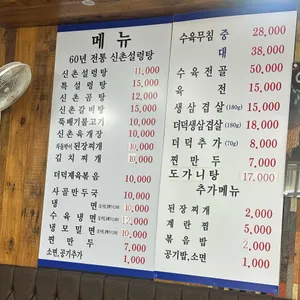 메뉴
60년 전통 신촌설렁탕
신촌설렁탕 11,000
특설렁탕 15,000
신촌곰탕 12,000
신촌갈비탕 15,000
뚝배기불고기 10,000
신촌육개장 10,000
된장찌개 10,000
김치찌개 10,000
더덕제육볶음 10,000
사골만두국 10,000
냉면 10,000
수육냉면 12,000
냉모밀면 10,000
찐만두 7,000
소면,공기추가 1,000
수육무침 중 28,000
대 38,000
수육전골 50,000
육전 15,000
생삼겹살 (180g) 15,000
더덕생삼겹살 (180g) 18,000
더덕추가 (70g) 8,000
찐만두 7,000
도가니탕 17,000
추가메뉴
된장찌개 2,000
계란찜 5,000
볶음밥 2,000
공기밥,소면 1,000